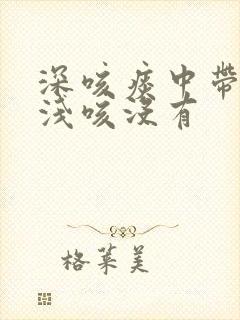 深咳痰中带
浅咳没有
格莱美